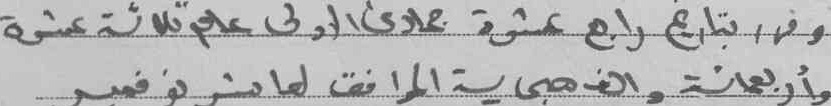 وفر، بتاريخ رابع عشرة جمادى الاولى عام ثلاثة عشرة
وأربعمائة والف هجرية الموافق لعاشر نوفمبر